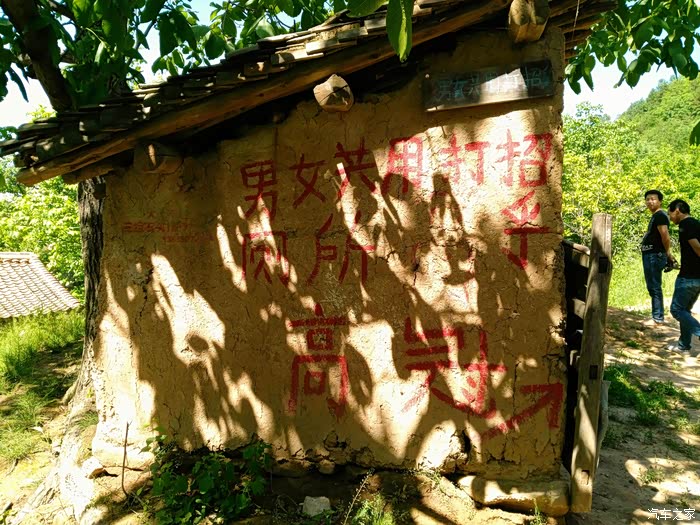 男女共用打招乎
厕所
高冠
汽车之家